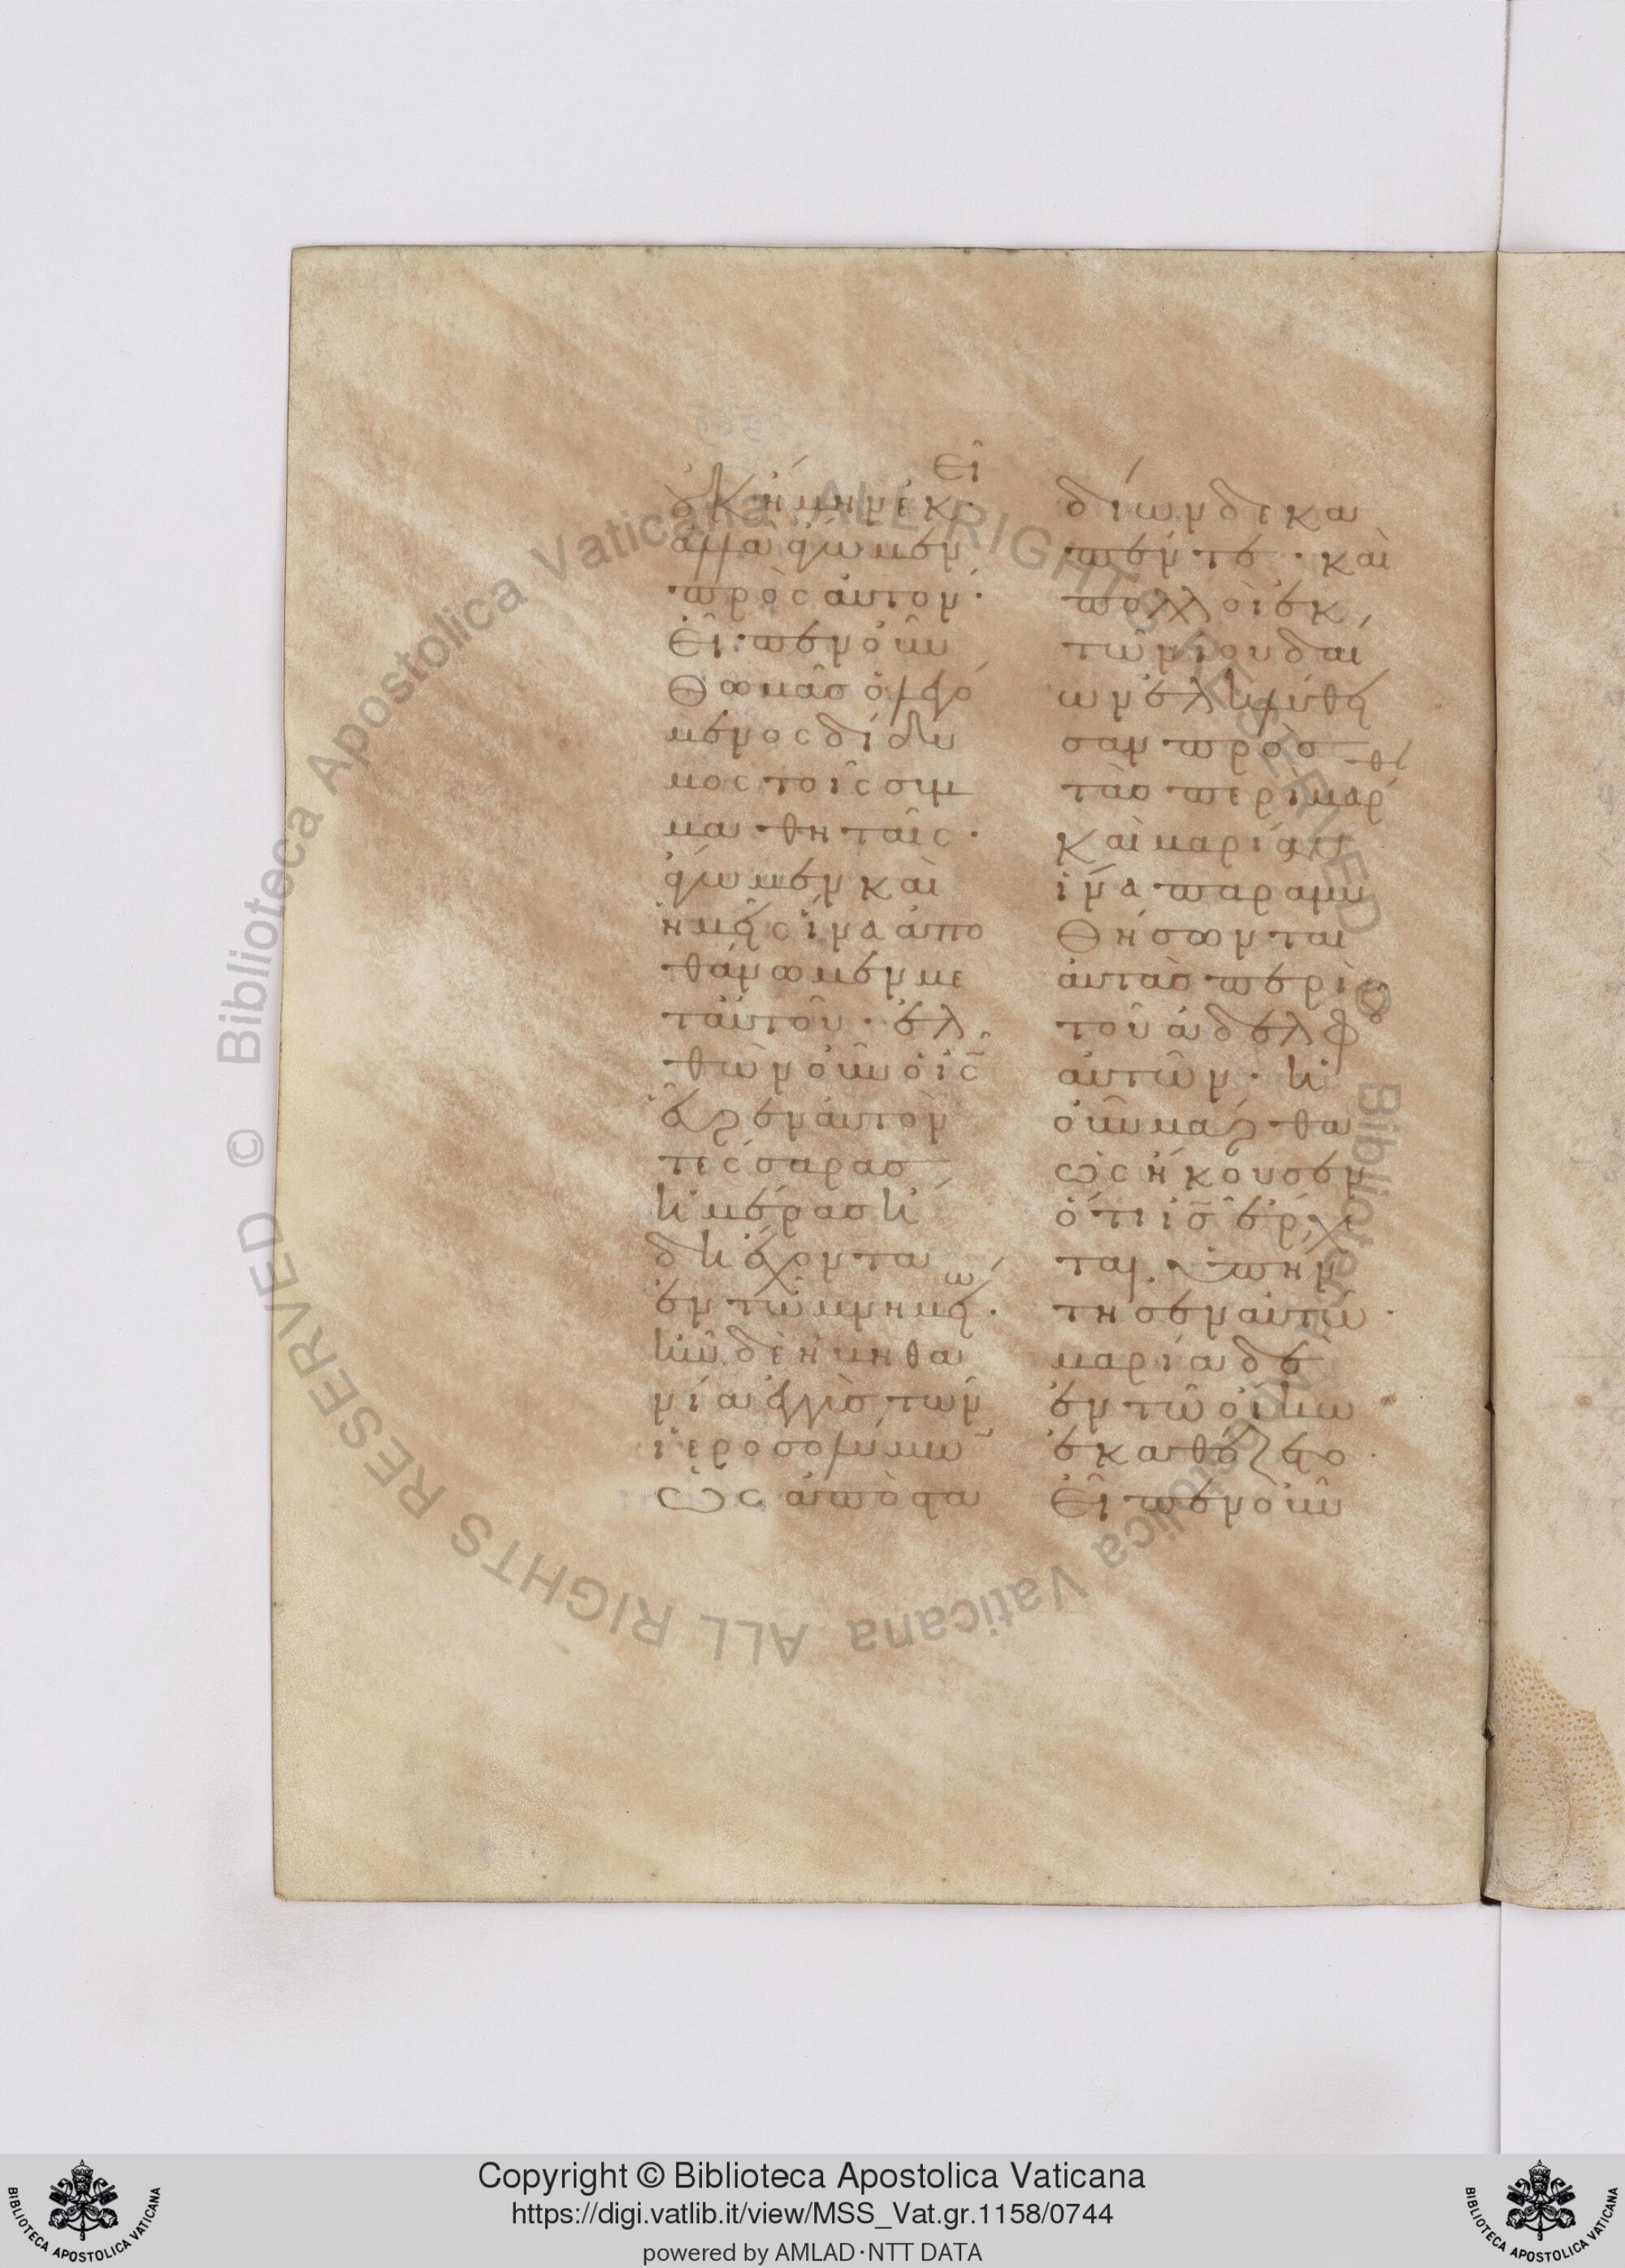 οὐκ ἤμην ἐκεῖ·
ἀλλὰ ἄγωμεν
πρὸς αὐτόν·
εἶπεν οὖν
Θωμᾶσ ὁ λεγό
μενος δίδυ
μος τοῖς συμ
μαθηταῖς·
ἄγωμεν καὶ
ἡμεῖς ἵνα ἀπο
θάνωμεν με
τ αὐτοῦ· ἐλ
θὼν οὖν ὁ ις̅
εὗρεν αὐτὸν
τέσσαρασ
ἡμέρασ ἤ
δη ἔχοντα
ἐν τῶ μνημείω·
ἦν δὲ ἡ βηθα
νία ἐγγὺσ τῶν
ἱεροσολύμων
ὡς ἀπὸ στα
δίων δεκα
πέντε· καὶ
πολλοὶ ἐκ
τῶν ἰουδαί
ων ἐληλύθει
σαν πρὸσ
τὰσ περὶ μάρθ
καὶ μαρίαν
ἵνα παραμυ
θήσωνται
αὐτὰσ περὶ
τοῦ ἀδελφοῦ
αὐτῶν· ἡ
οὖν μάρθα
ὡς ἤκουσεν
ὅτι ισ̅ ἔρχε
ται. ὑπήν
τησεν αὐτῶ·
μαρία δὲ
ἐν τῶ οἴκω
ἐκαθέζετο·
εἶπεν οὖν
Copyright © Biblioteca Apostolica Vaticana
https://digi.vatlib.it/view/MSS_Vat.gr.1158/0744
powered by AMLAD·NTT DATA
BIBLIOTECA APOSTOLICA VATICANA
BIBLIOTECA APOSTOLICA VATICANA
© Biblioteca Apostolica Vaticana ALL RIGHTS RESERVED
© Biblioteca Apostolica Vaticana ALL RIGHTS RESERVED